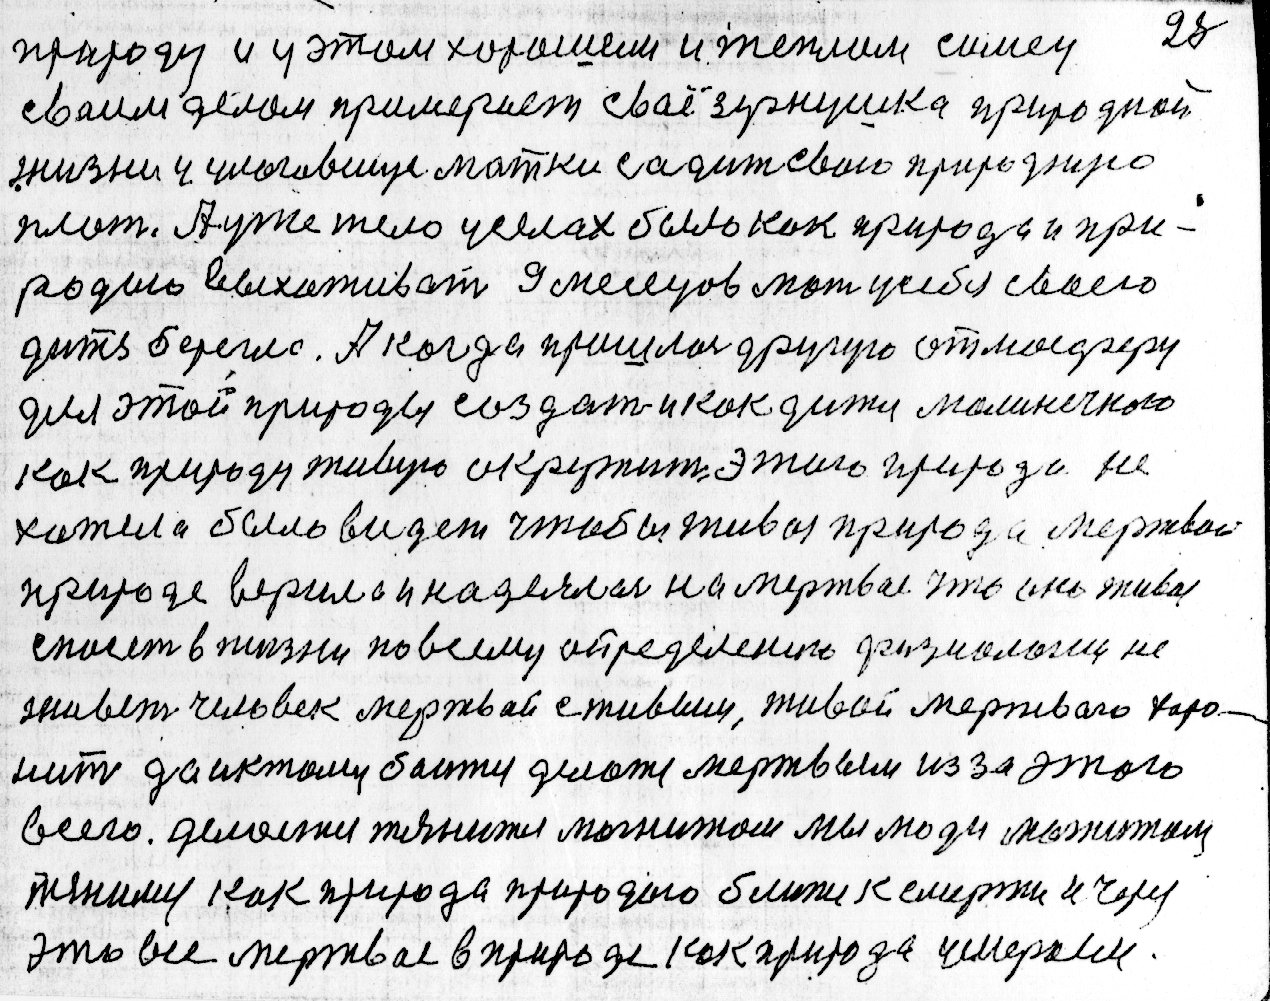 28
природу и у этом хорошем и теплом самеу
сваим делом примерает сваё зэрнушка природной
жизни и улогавшуе матки садит свого природнуго
плот. А уже тело уселах было как природа и при-
родою выхаживат 9 месецов мат усебя своего
дитя берегла. А когда пришлая другуго отмосферу
для этой природы создат и как дитя малинечкого
как природу живую акружит. Этого природа не
хатела было видет чтобы живоя природа мертвой
природе верила и надеялоя на мертвое что ано живоя
спасет в жизни по всему определению физиологии не
живет человек мертвай с жившим, живой мертваго харо-
нит да и к тому баитя делоти мертвым из за этого
всего. делоетя тянитя могнитом мы люди мотитому
тянимы как природа природою ближе к смерти и черу
это все мертвое в природе как природа умераем.